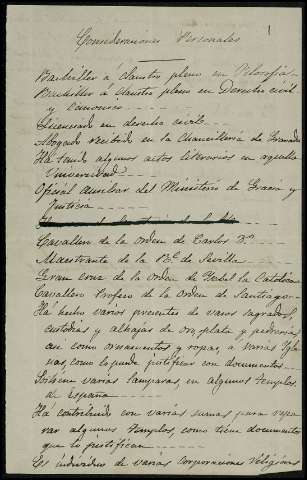 1
Consideraciones Personales
Bachiller á claustro pleno en Filosofía
Bachiller á claustro pleno en Derecho civil
y canonico
Licenciado en derecho civil
Abogado recibido en la Chancilleria de Granada
Ha tenido algunos actos literarios en aquella
Universidad
Oficial auxiliar del Ministerio de Gracia y
Justicia
Caballero de la orden de Carlos 3º
Maestrante de la Rl de Sevilla
Gran Cruz de la Orden de Isabel la Católica
Caballero Profeso de la Orden de Santiago
Ha hecho varios presentes de vasos sagrados,
custodias y alhajas de oro, plata y pedrerias
asi como ornamentos y ropas, á varias Igle
sias, como lo puede justificar con documentos
Sostiene varias lamparas, en algunos templos
de España
Ha contribuido con varias sumas para repa
rar algunos templos, como tiene documentos
que lo justifican
Es individuo de varias corporaciones religiosas